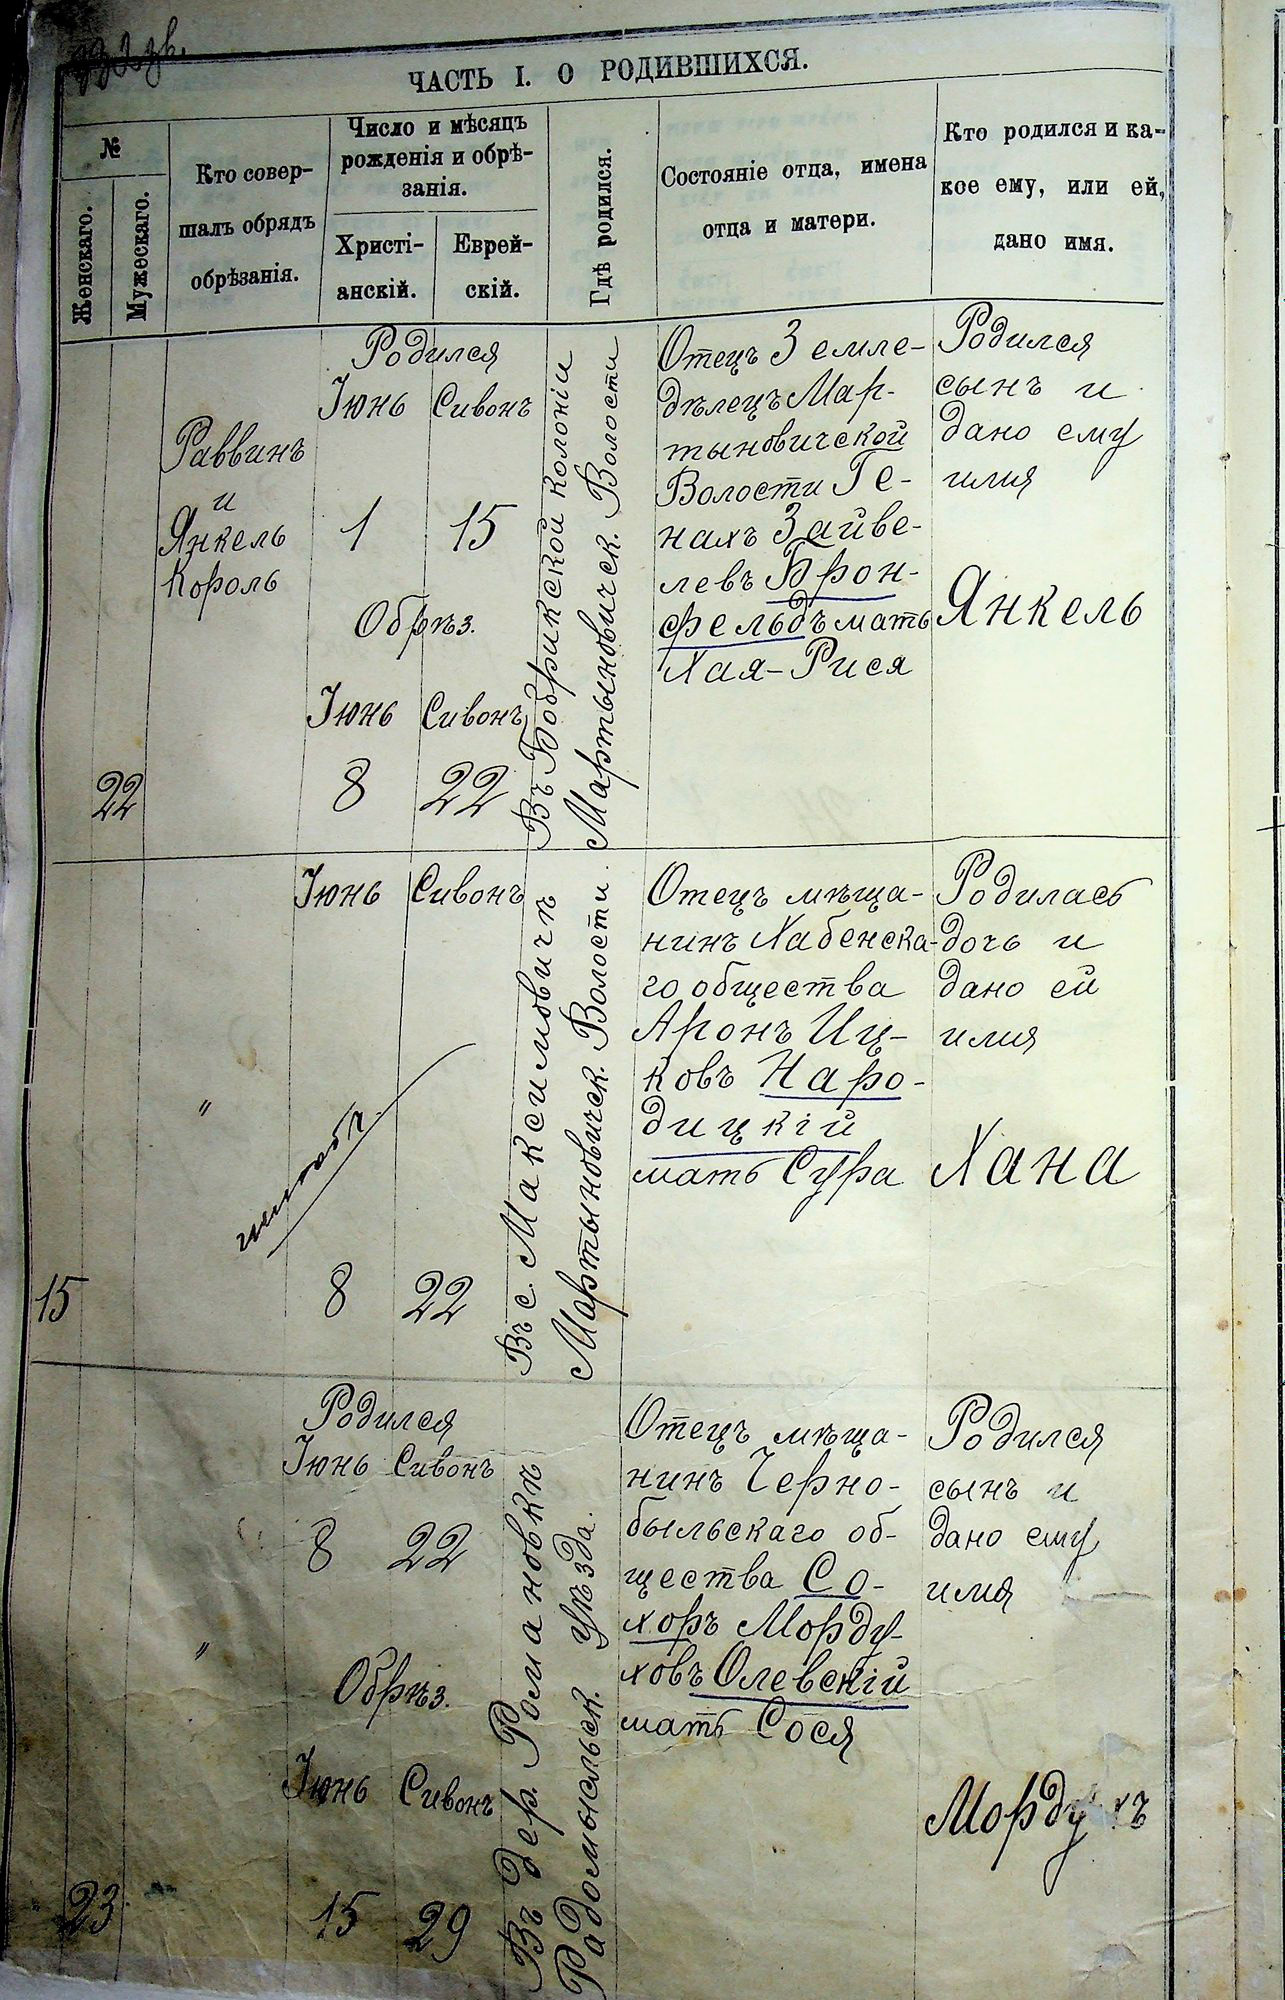 ЧАСТЬ I. О РОДИВШИХСЯ.
№
Женскаго.
Мужескаго.
Кто совер-
шалъ обрядъ
обрѣзанія.
Число и мѣсяцъ
рожденія и обрѣ-
занія.
Христі-
анскій.
Еврей-
скій.
Гдѣ родился.
Состояніе отца, имена
отца и матери.
Кто родился и ка-
кое ему, или ей,
дано имя.
22
Раввинъ
и
Янкель
Король
Родился
Іюнь Сивонъ
1 15
Обрѣз.
Іюнь Сивонъ
8 22
Въ Бобрикской колоніи
Мартыновическ. Волости
Отецъ Земле-
дѣлецъ Мар-
тыновичской
Волости Ге-
нахъ Зайве-
левъ Брон-
фельдъ мать
Хая-Рися
Родился
сынъ и
дано ему
имя
Янкель
15
"
Іюнь Сивонъ
8 22
Въ с. Максимовичѣ
Мартыновическ. Волости.
Отецъ мѣща-
нинъ Хабенска-
го общества
Аронъ Иц-
ковъ Наро-
дицкій
мать Сура
Родилась
дочь и
дано ей
имя
Хана
23
"
Родился
Іюнь Сивонъ
8 22
Обрѣз.
Іюнь Сивонъ
15 29
Въ дер. Романовкѣ
Радомысльск. уѣзда.
Отецъ мѣща-
нинъ Черно-
быльскаго об-
щества Со-
хоръ Морду-
ховъ Олевскій
мать Сося
Родился
сынъ и
дано ему
имя
Мордухъ